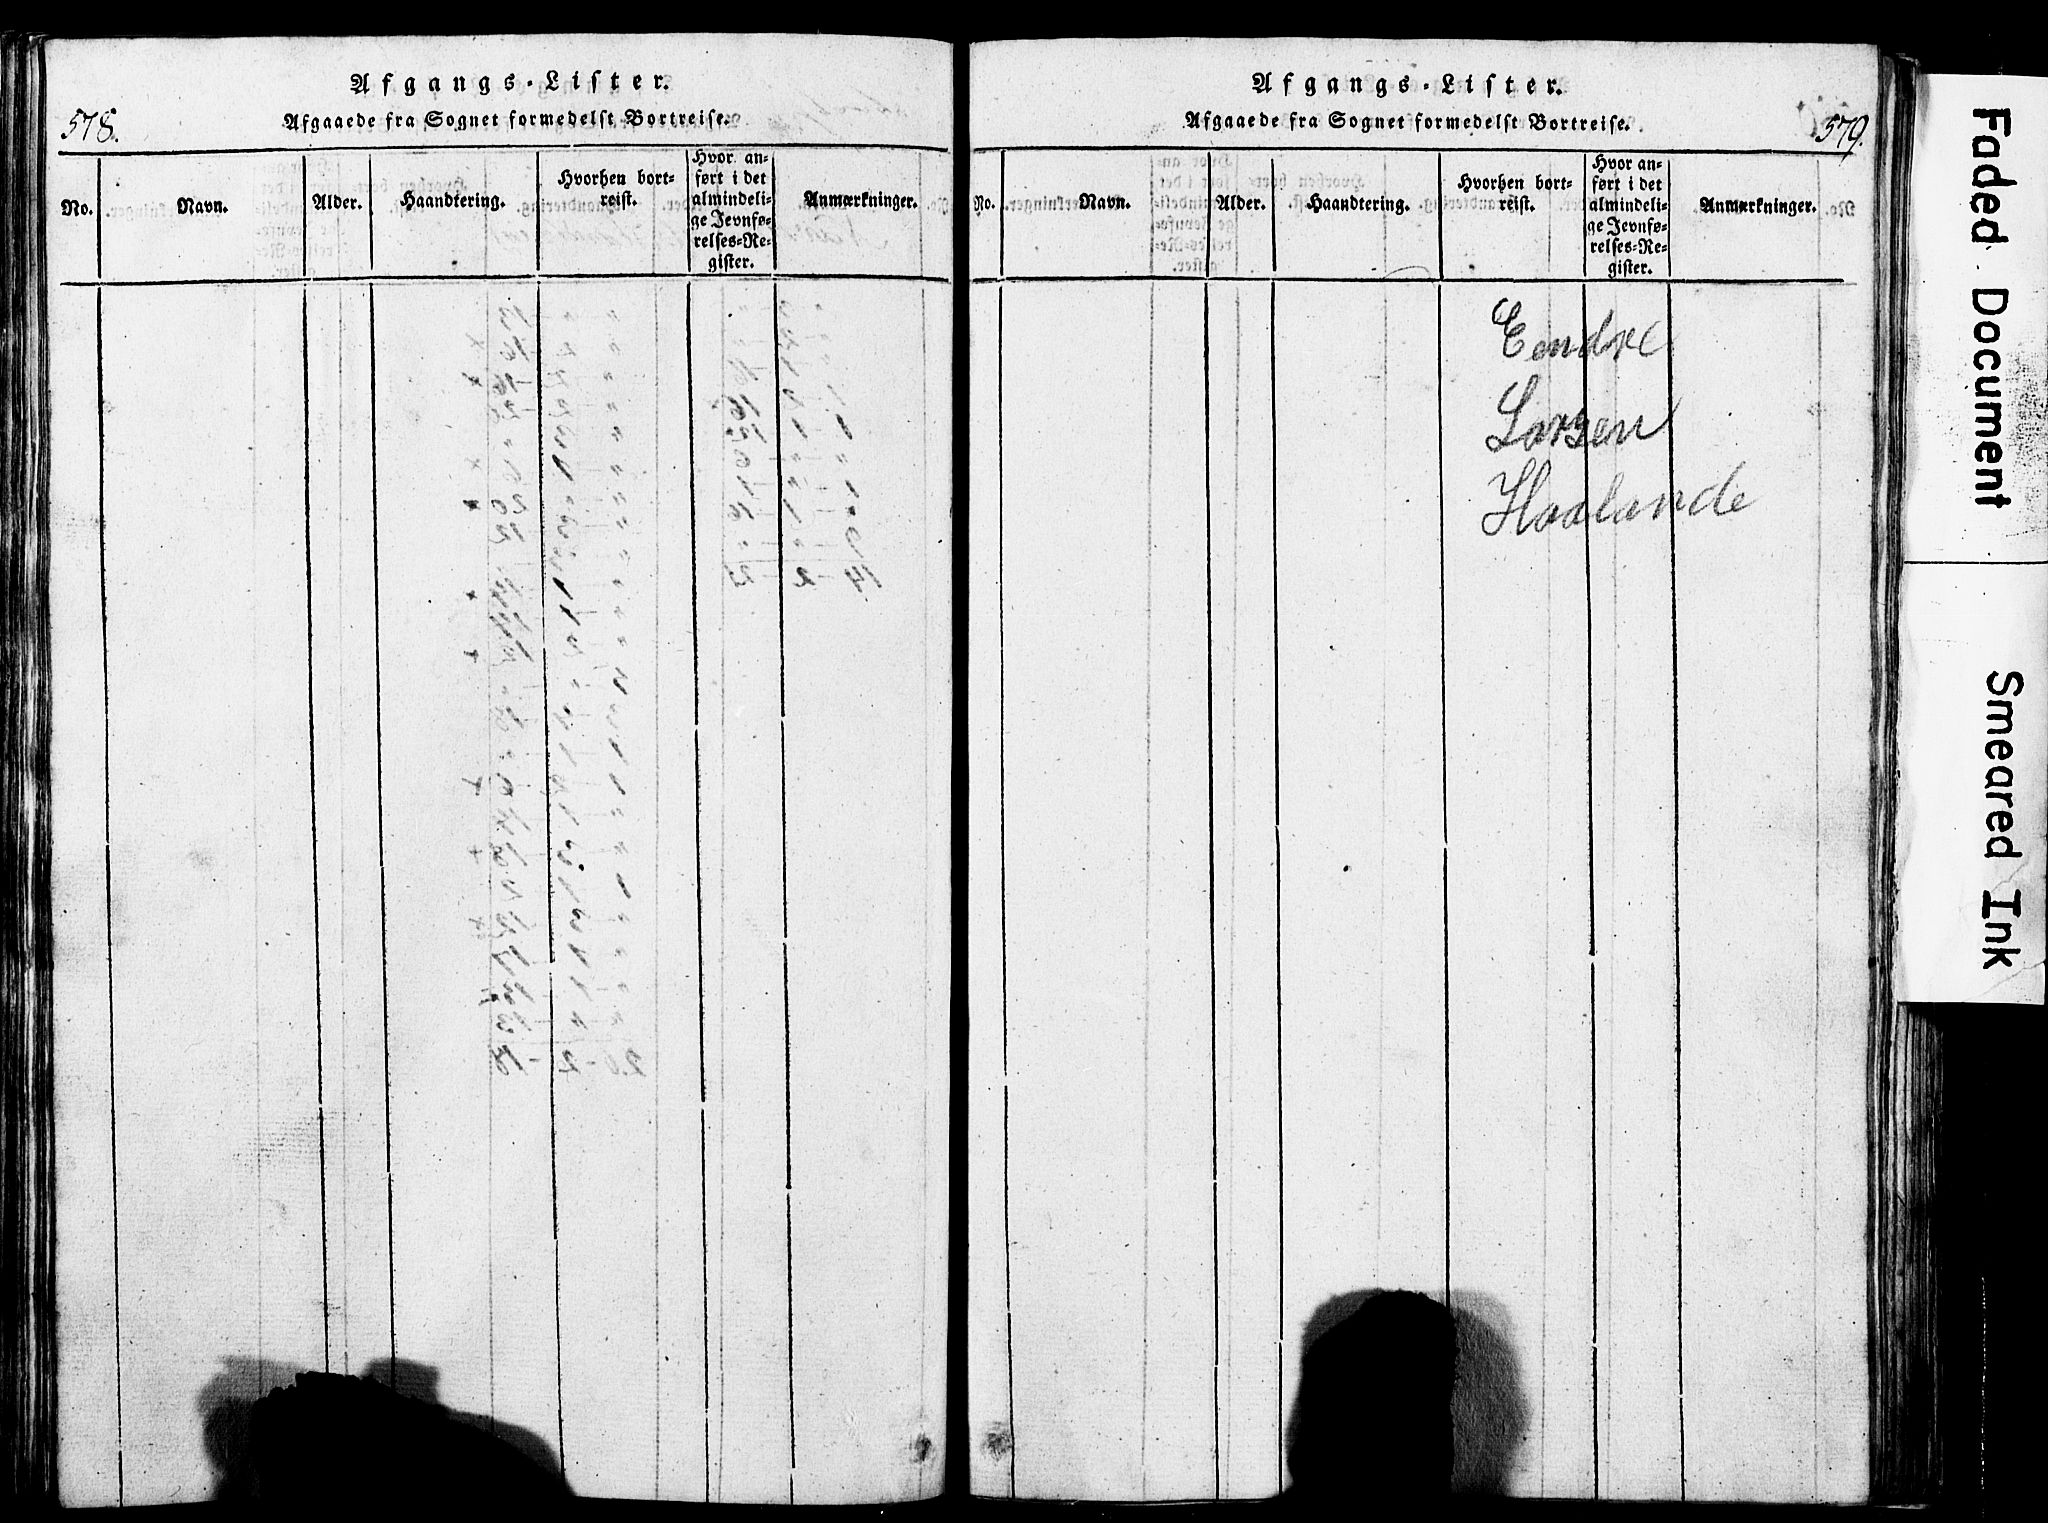 578.
Afgangs-Lister.
Afgaaede fra Sognet formedelst Bortreise.
No.
Navn.
Alder.
Haandtering.
Hvorhen bort-
reist.
Hvor an-
ført i det
almindeli-
ge Jevnfø-
relses-Re-
gister.
Anmærkninger.
579.
Afgangs-Lister.
Afgaaede fra Sognet formedelst Bortreise.
No.
Navn.
Alder.
Haandtering.
Hvorhen bort-
reist.
Hvor an-
ført i det
almindeli-
ge Jevnfø-
relses-Re-
gister.
Anmærkninger.
Eendre
Larsen
Haalande
Faded Document
Smeared Ink